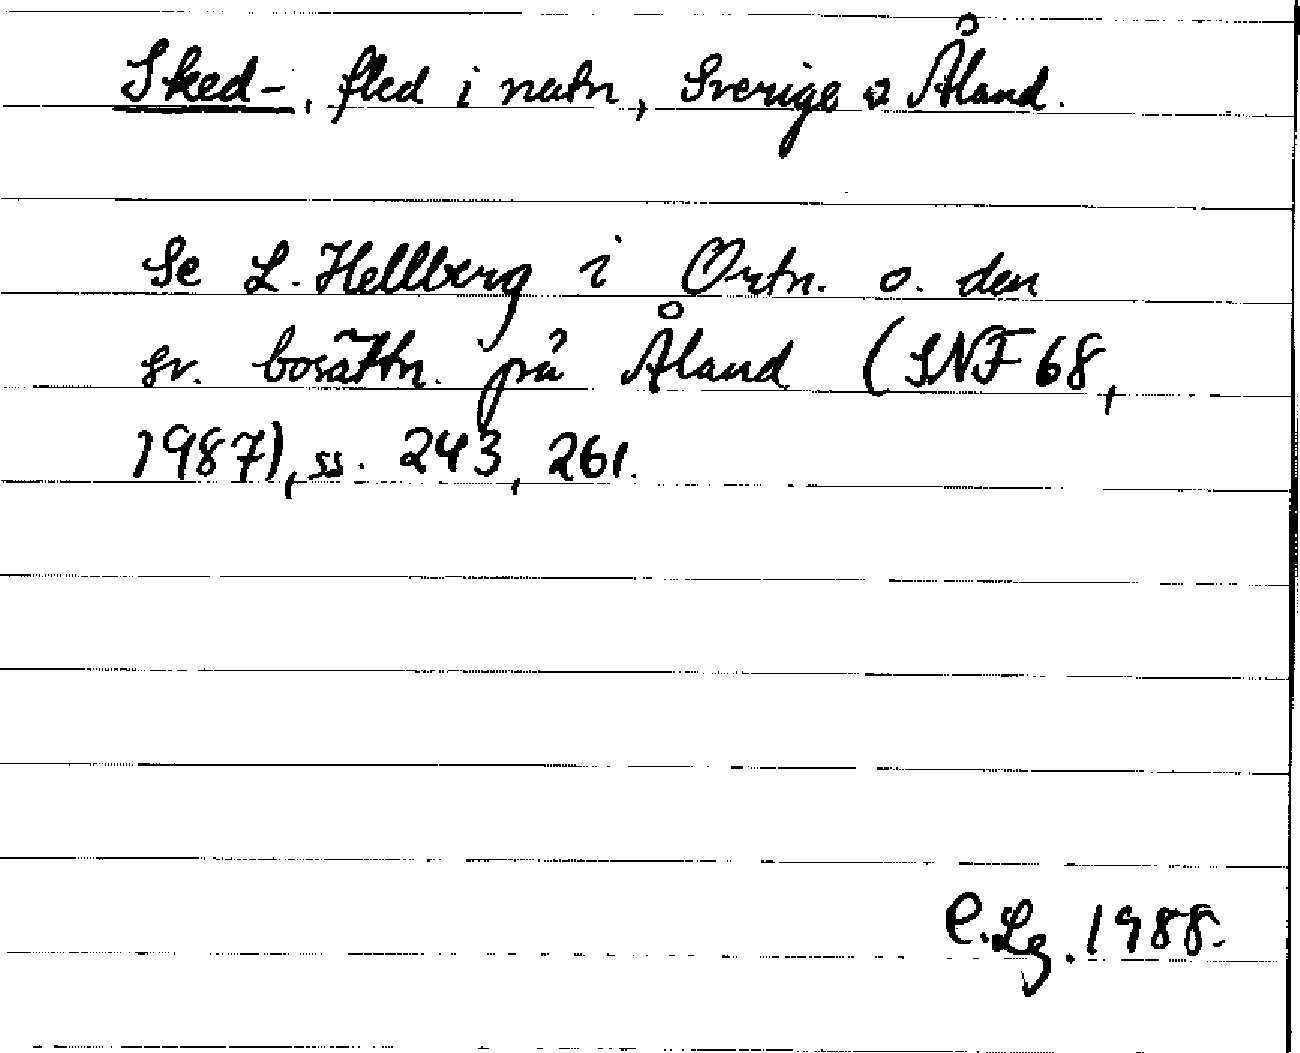 Sked-, fled i natn, Sverige o Åland.
Se L. Hellberg i Ortn. o. den
sv. bosättn. på Åland (SNF 68,
1987), ss. 243, 261.
C. Lg. 1988.